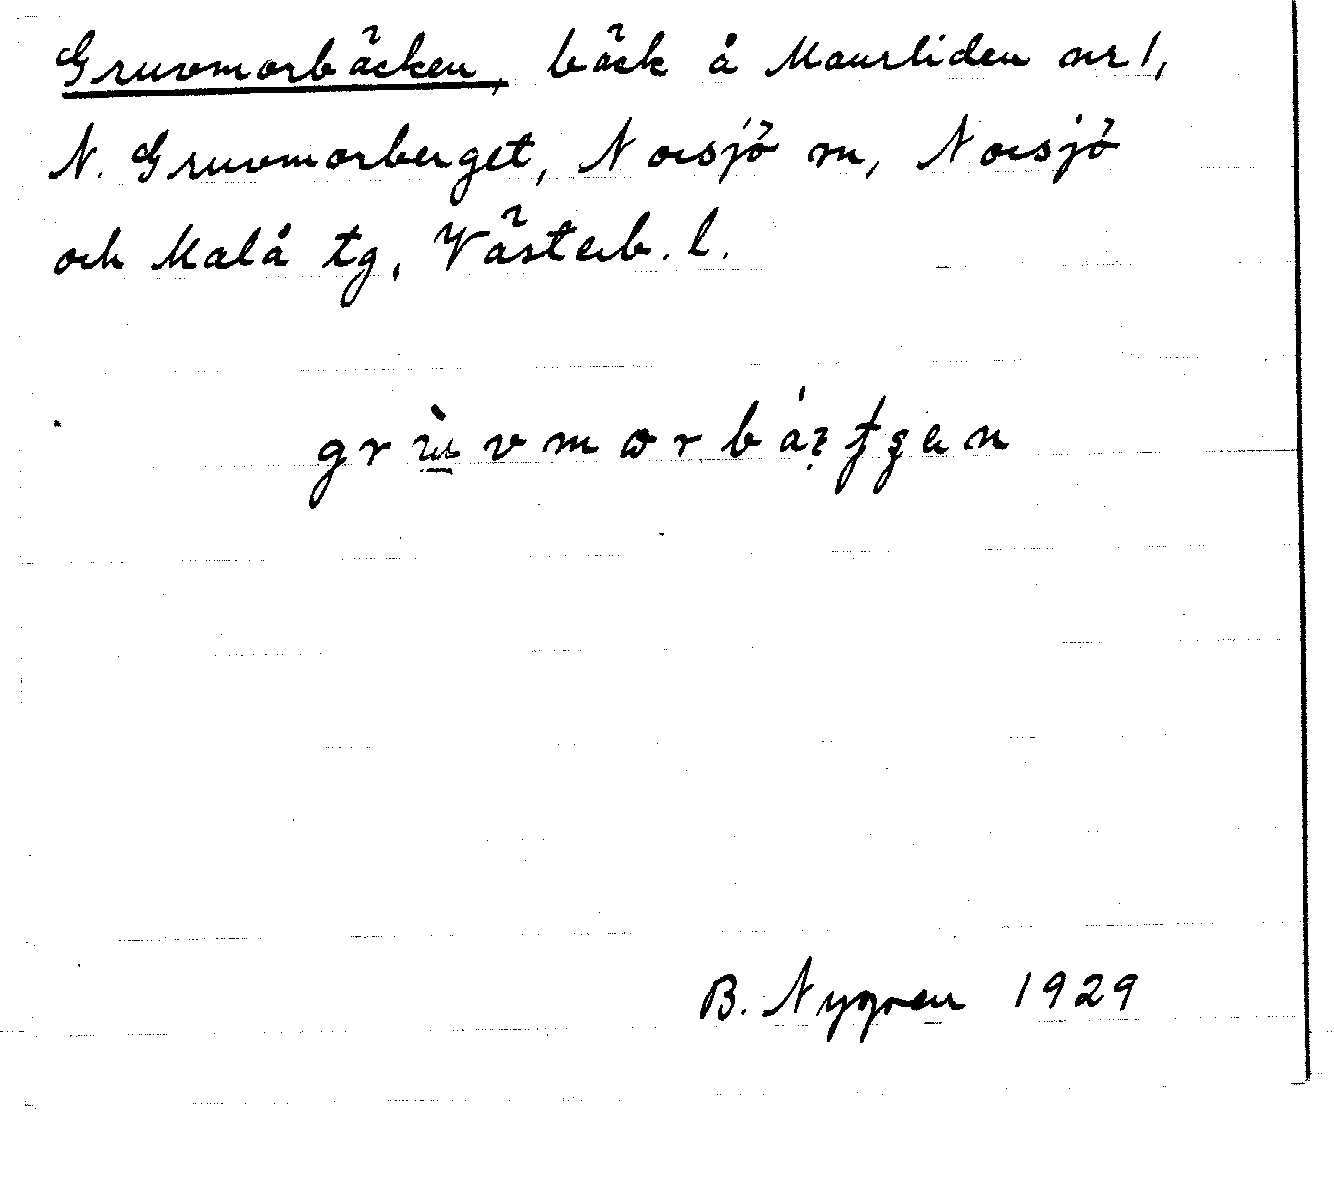 Gruvmorbäcken, bäck å Maurliden nr 1,
N. Gruvmorberget, Norsjö sn, Norsjö
och Malå tg, Västerb. l.
B. Nygren 1929